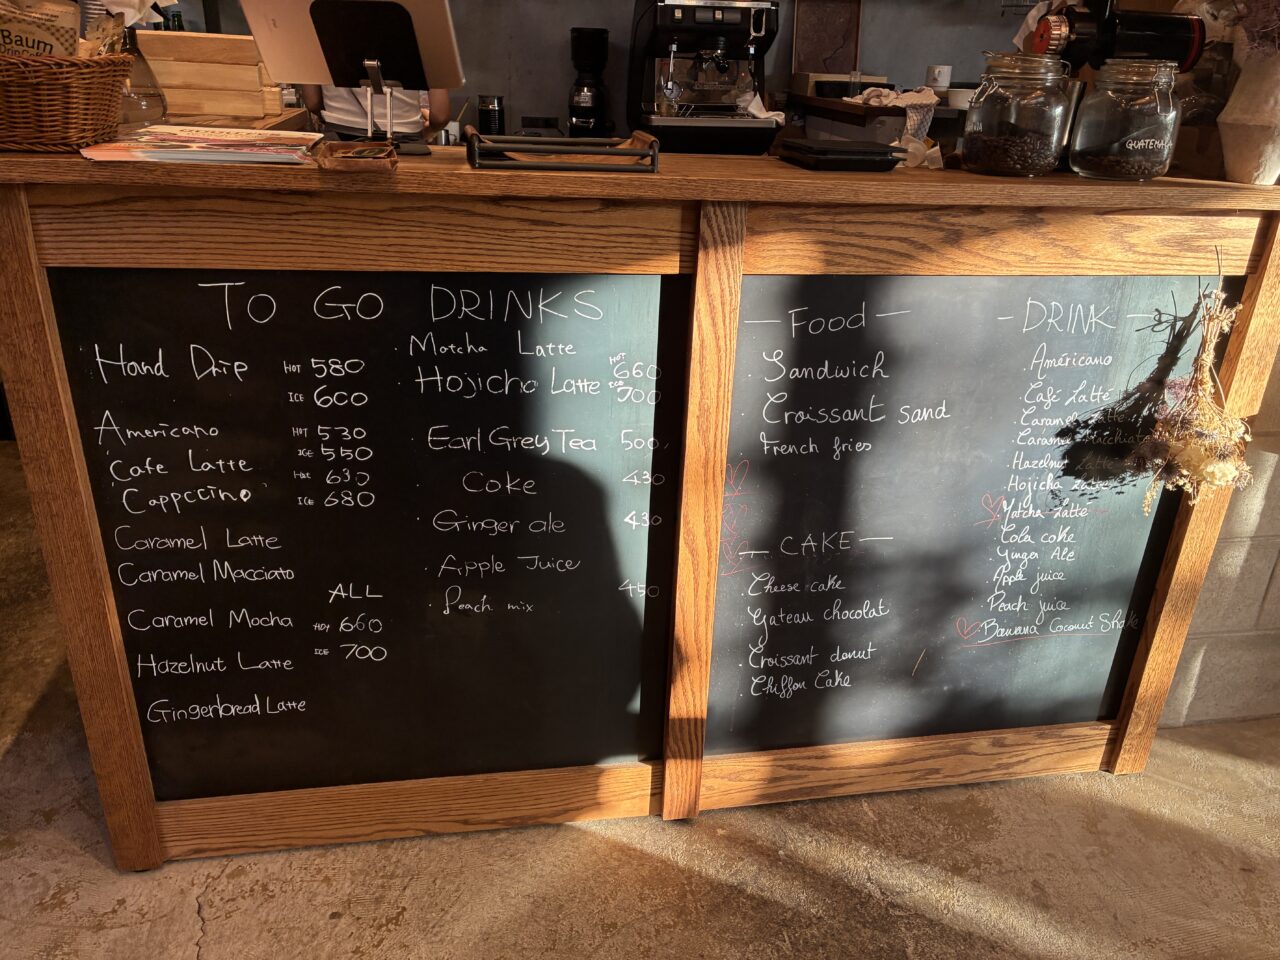 Baum
GUATEMALA
TO GO DRINKS
Hand Drip HOT 580
ICE 600
Americano HOT 530
ICE 550
Cafe Latte HOT 630
Cappccino ICE 680
Caramel Latte
Caramel Macciato
ALL
Caramel Mocha HOT 660
ICE 700
Hazelnut Latte
Gingerbread Latte
· Matcha Latte HOT 660
· Hojicha Latte ICE 700
· Earl Grey Tea 500
Coke 430
· Ginger ale 430
· Apple Juice
450
· Peach mix
— Food —
· Sandwich
· Croissant sand
· French fries
— CAKE —
· Cheese cake
· Gateau chocolat
· Croissant donut
· Chiffon Cake
— DRINK —
· Américano
· Café Latté
· Caramel Latte
· Caramel Macchiato
· Hazelnut Latte
· Hojicha Latte
· Matcha Latté
· Cola coke
· Ginger Ale
· Apple juice
· Peach juice
· Banana Coconut Shake